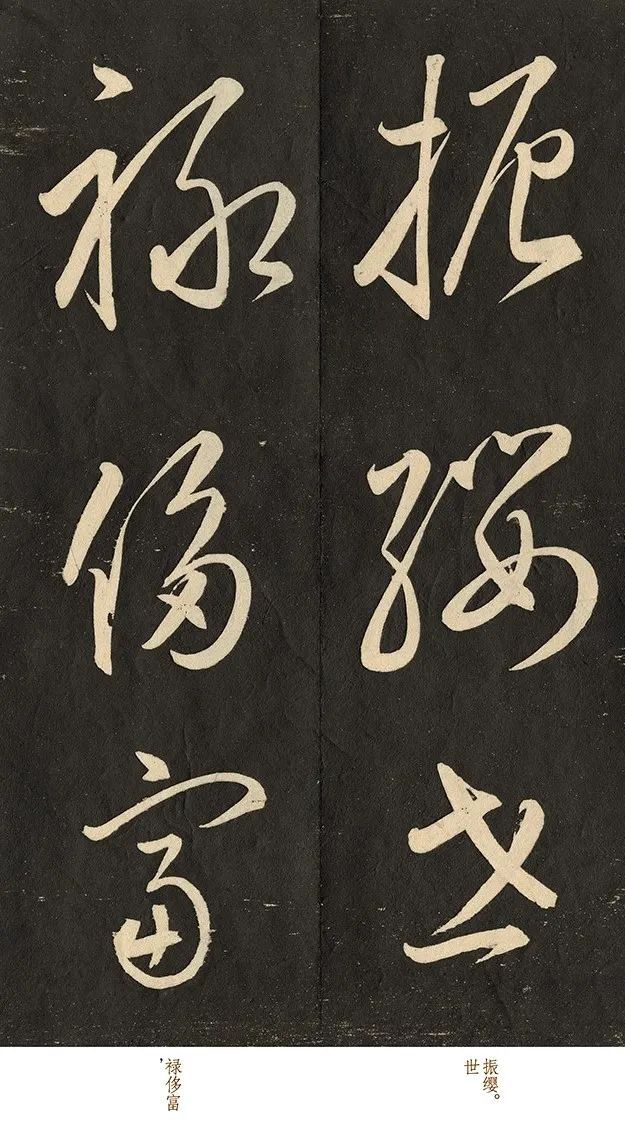 振纓世
祿侈富
振缨。
世
禄侈富
，